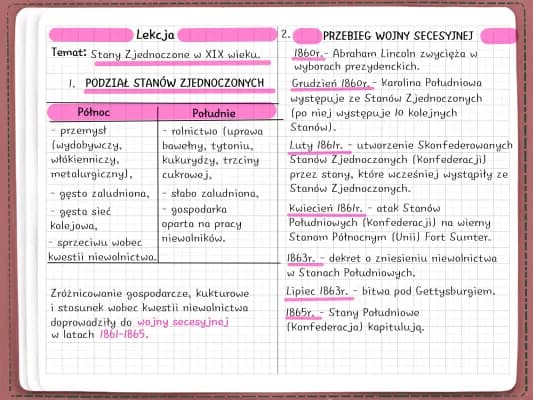 Lekcja
Temat: Stany Zjednoczone w XIX wieku.
1. PODZIAŁ STANÓW ZJEDNOCZONYCH
Północ
- przemysł
(wydobywczy,
włókienniczy,
metalurgiczny),
- gęsto zaludniona,
- gęsta sieć
kolejowa,
- sprzeciwu wobec
kwestii niewolnictwa.
Południe
- rolnictwo (uprawa
bawełny, tytoniu,
kukurydzy, trzciny
cukrowej,
- słabo zaludniona,
- gospodarka
oparta na pracy
niewolników.
Zróżnicowanie gospodarcze, kukturowe
i stosunek wobec kwestii niewolnictwa
doprowadziły do wojny secesyjnej
w latach 1861-1865.
2. PRZEBIEG WOJNY SECESYJNEJ
1860r. - Abraham Lincoln zwycięża w
wyborach prezydenckich.
Grudzień 1860r. - Karolina Południowa
występuje ze Stanów Zjednoczonych
(po niej występuje 10 kolejnych
Stanów).
Luty 1861r. - utworzenie Skonfederowanych
Stanów Zjednoczonych (Konfederacji)
przez stany, które wcześniej wystąpiły ze
Stanów Zjednoczonych.
Kwiecień 1861r. - atak Stanów
Południowych (Konfederacji) na wierny
Stanom Północnym (Unii) Fort Sumter.
1863r. - dekret o zniesieniu niewolnictwa
w Stanach Południowych.
Lipiec 1863r. - bitwa pod Gettysburgiem.
1865r. - Stany Południowe
(Konfederacja) kapitulują.